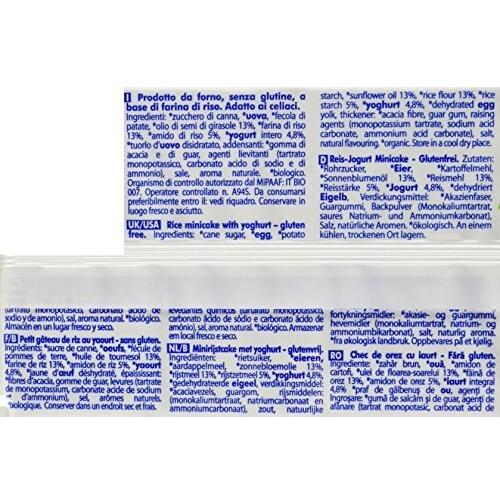 I Prodotto da forno, senza glutine, a
base di farina di riso. Adatto ai celiaci.
Ingredienti: *zucchero di canna, *uova, *fecola di
patate, *olio di semi di girasole 13%, *farina di riso
13%, *amido di riso 5%, *yogurt intero 4,8%,
*tuorlo d'uovo disidratato, addensanti: *gomma di
acacia e di guar, agenti lievitanti (tartrato
monopotassico, carbonato acido di sodio e di
ammonio), sale, aroma naturale. *biologico.
Organismo di controllo autorizzato dal MiPAAF: IT BIO
007. Operatore controllato n. A94S. Da consumarsi
preferibilmente entro il: vedi riquadro. Conservare in
luogo fresco e asciutto.
UK/USA Rice minicake with yoghurt - gluten
free. Ingredients: *cane sugar, *egg, *potato
starch, *sunflower oil 13%, *rice flour 13%, *rice
starch 5%, *yoghurt 4,8%, *dehydrated egg
yolk, thickener: *acacia fibre, guar gum, raising
agents (monopotassium tartrate, sodium acid
carbonate, ammonium acid carbonate), salt,
natural flavouring. *organic. Store in a cool dry place.
D Reis-Jogurt Minicake - Glutenfrei. Zutaten:
*Rohrzucker, *Eier, *Kartoffelmehl,
*Sonnenblumenöl 13%, *Reismehl 13%,
*Reisstärke 5%, *Jogurt 4,8%, *dehydriert
Eigelb, Verdickungsmittel: *Akazienfaser,
Guargummi, Backpulver (Monokaliumtartrat,
saures Natrium- und Ammoniumkarbonat),
Salz, natürliche Aromen. *ökologisch. An einem
kühlen, trockenen Ort lagern.
(tartrato monopotásico, carbonato ácido de
sodio y de amonio), sal, aroma natural. *biológico.
Almacén en un lugar fresco y seco.
F/B Petit gâteau de riz au yaourt - sans gluten.
Ingrédients: *sucre de canne, *oeufs, *fécule de
pommes de terre, *huile de tournesol 13%,
*farine de riz 13%, *amidon de riz 5%, *yaourt
4,8%, *jaune d'œuf déshydraté, épaississant:
*fibres d'acacia, gomme de guar, levures (tartrate
de monopotassium, carbonate acide de sodium et
d'ammonium), sel, arômes naturels.
*biologique. Conservare dans un endroit sec et frais.
levedantes químicos (tartarato monopotássico,
carbonato ácido de sódio e carbonato ácido de
amónio), sal, aroma natural. *biológico. Armazenar
em local fresco e seco.
NL/B Minirijstcake met yoghurt - glutenvrij.
Ingrediënten: *rietsuiker, *eieren,
*aardappelmeel, *zonnebloemolie 13%,
*rijstmeel 13%, *rijstzetmeel 5%, *yoghurt 4,8%,
*gedehydrateerde eigeel, verdikkingsmiddel:
*acaciavezels, guargom, rijsmiddelen:
(monokaliumtartraat, natriumcarbonaat en
ammoniumcarbonaat), zout, natuurlijke
fortykningsmidler: *akasie- og guargummi,
hevemidler (monokaliumtartrat, natrium- og
ammoniumbikarbonat), salt, naturlig aroma.
*fra økologisk landbruk. Oppbevares på et kjølig
RO Chec de orez cu iaurt - Fără gluten.
Ingrediente: *zahăr brun, *ouă, *amidon de
cartofi, *ulei de floarea-soarelui 13%, *făină de
orez 13%, *amidon de orez 5%, *iaurt integral
4,8%, *praf de gălbenuș de ou, agenți de
îngroșare: *gumă de salcâm și de guar, agenți de
afânare (tartrat monopotasic, carbonat acid de